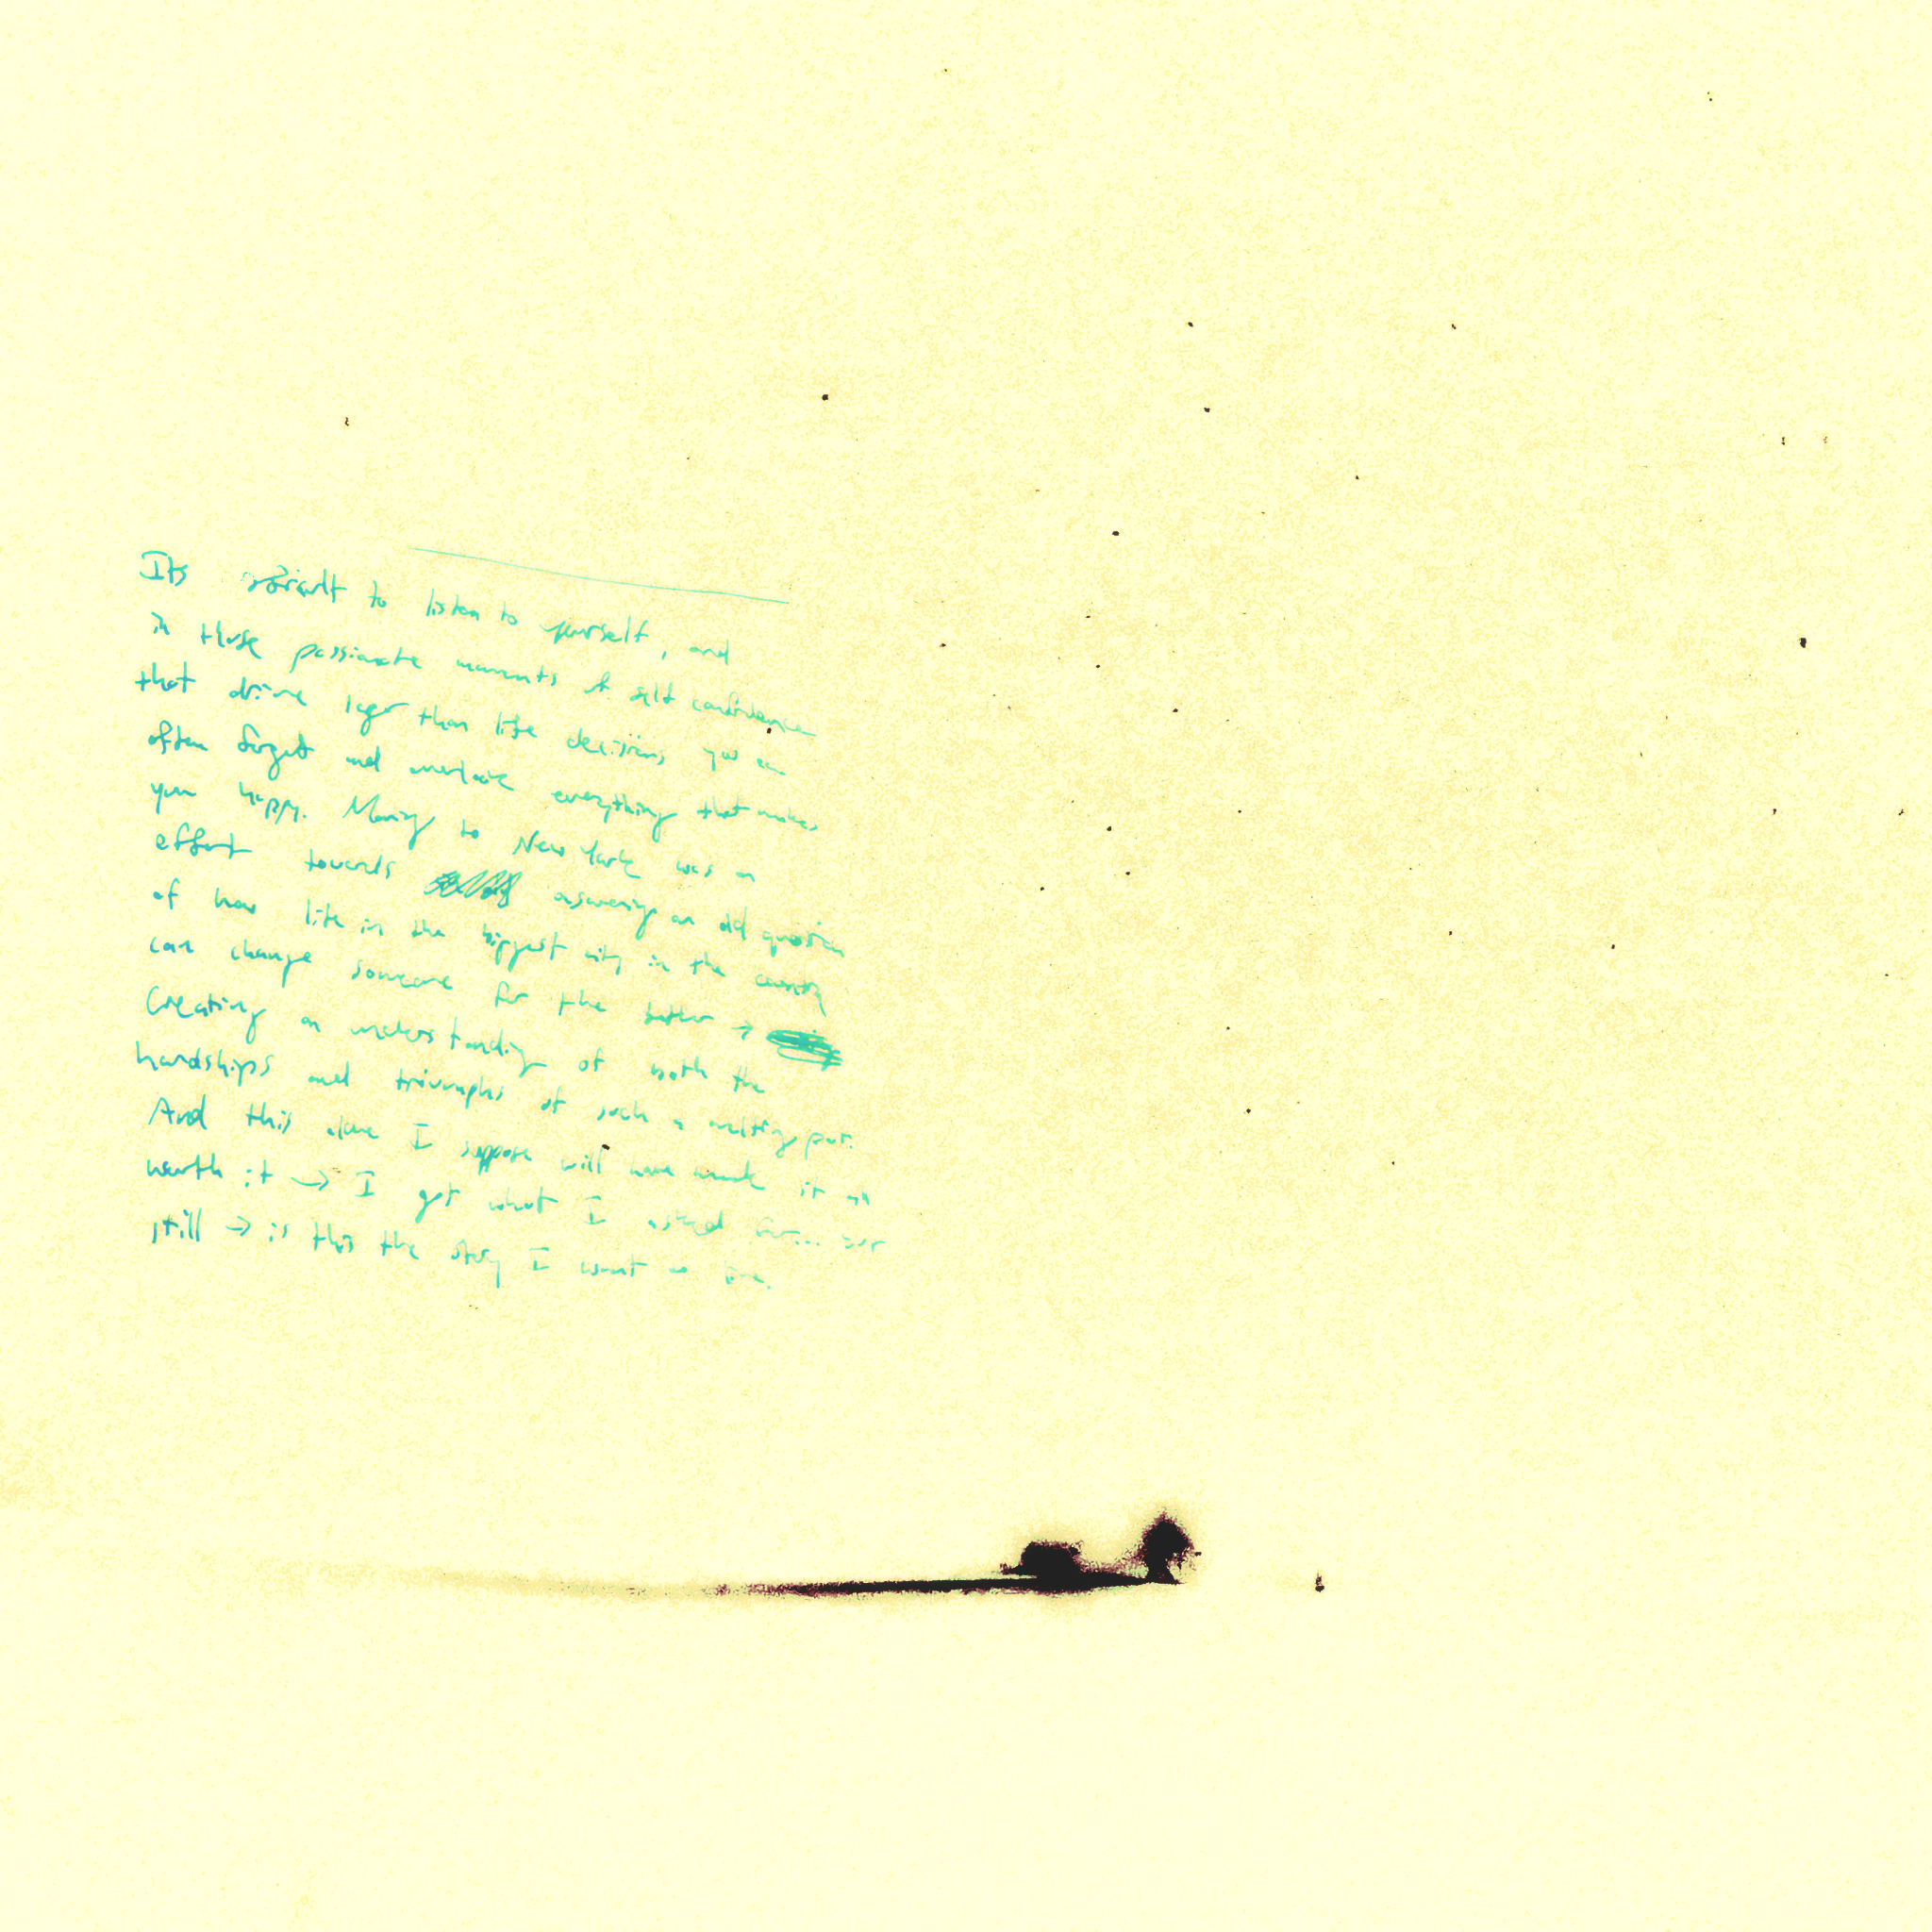 Its difficult to listen to yourself, and
in those passionate moments of self confidence
that drive larger than life decisions you can
often forget and overlook everything that makes
you happy. Moving to New York was an
effort towards answering an old question
of how life in the biggest city in the country
can change someone for the better →
Creating an understanding of both the
hardships and triumphs of such a melting pot.
And this alone I suppose will have made it all
worth it → I got what I asked for... but
still → is this the story I want to